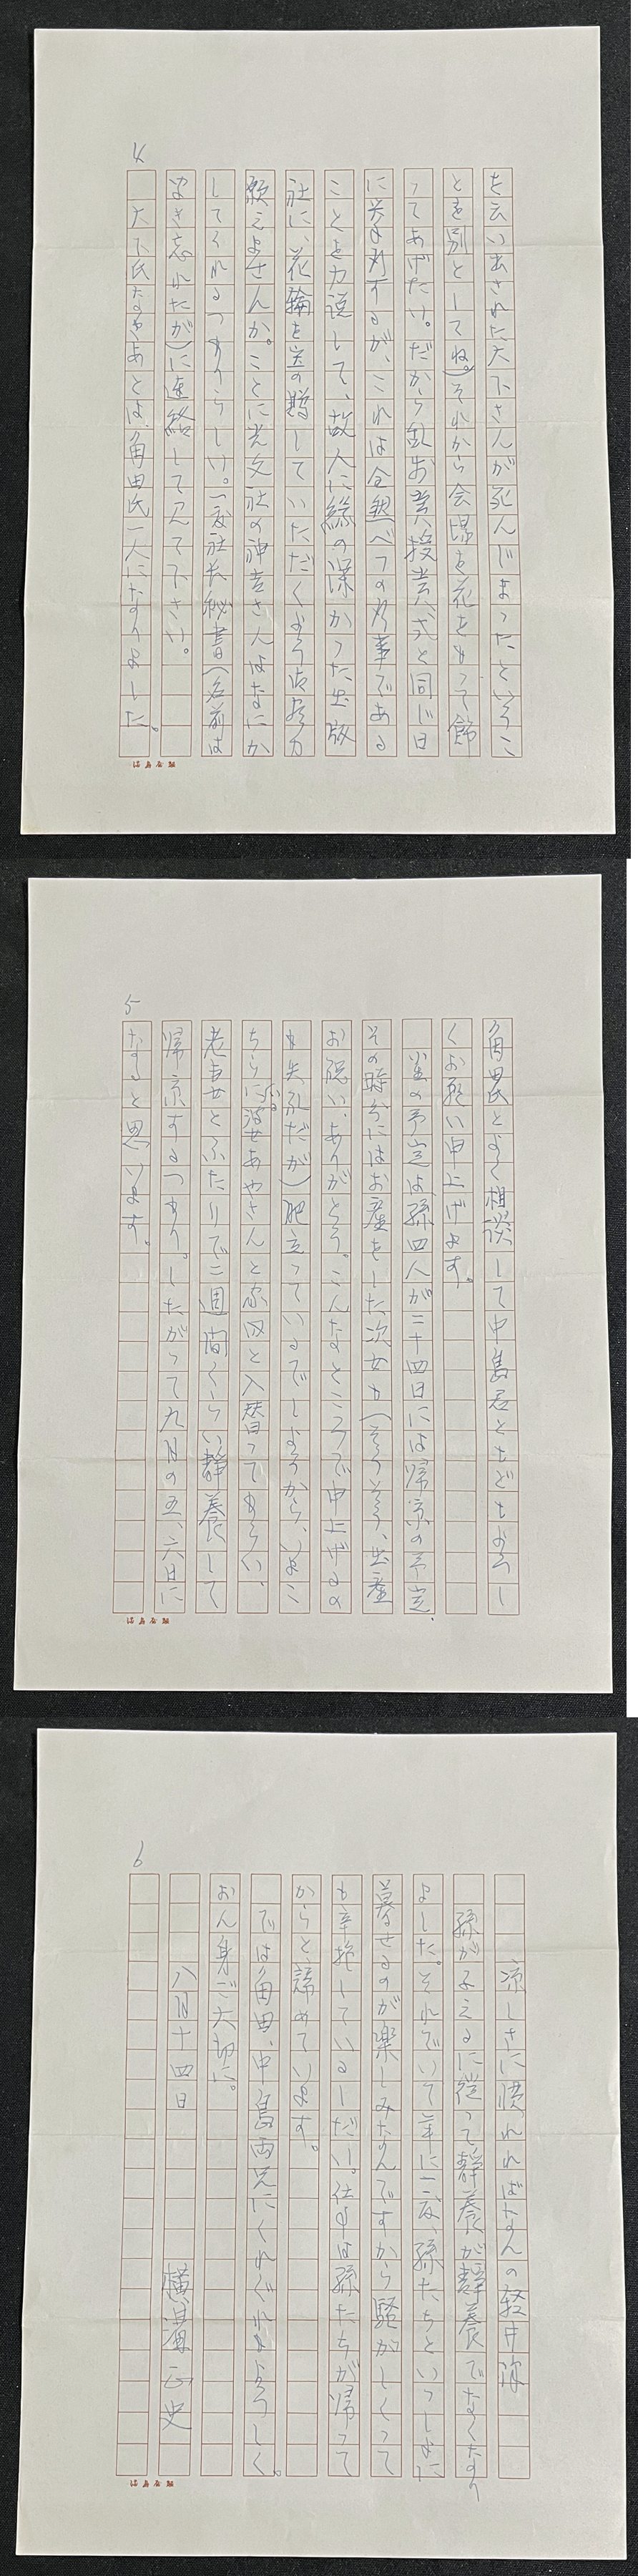 4
を云い出された大下さんが死んでまったというこ
とを別としてね)それから会場を花をもって飾
ってあげたい。だから乱歩賞授賞式と同じ日
に挙行するが、これは全然べつの行事である
ことを力説して、故人に縁の深かった出版
社に、花輪を寄贈していただくよう御尽力
願えませんか。ことに光文社の神吉さんはなにか
してくれるつもりらしい。一度社長秘書(名前は
まま忘れたが)に連絡してみて下さい。
大下氏なきあとは、角田氏一人になりました。
5
角田氏とよく相談して中島君ともどもよろし
くお願い申上げます。
小生の予定は孫四人が二十四日には帰京の予定、
その時分にはお産をした次女も(そうそう、出産
お祝い、ありがとう。こんなところで申上げるの
も失礼だが)肥立っているでしょうから、いまこ
ちらにいる婆あやさんと家内と入替ってもらい、
老妻とふたりで二週間くらい静養して
帰京するつもり。したがって九月の五、六日に
なると思います。
6
涼しさに慣れればなんの軽井沢
孫がふえるに従って静養が静養でなくなり
ました。それでいて年に一度、孫たちといっしょに
暮せるのが楽しみなんですから騒がしくって
も辛抱しているしだい。仕事は孫たちが帰って
からと、諦めています。
では角田、中島両兄にくれぐれもよろしく。
おん身ご大切に。
八月十四日
横溝正史